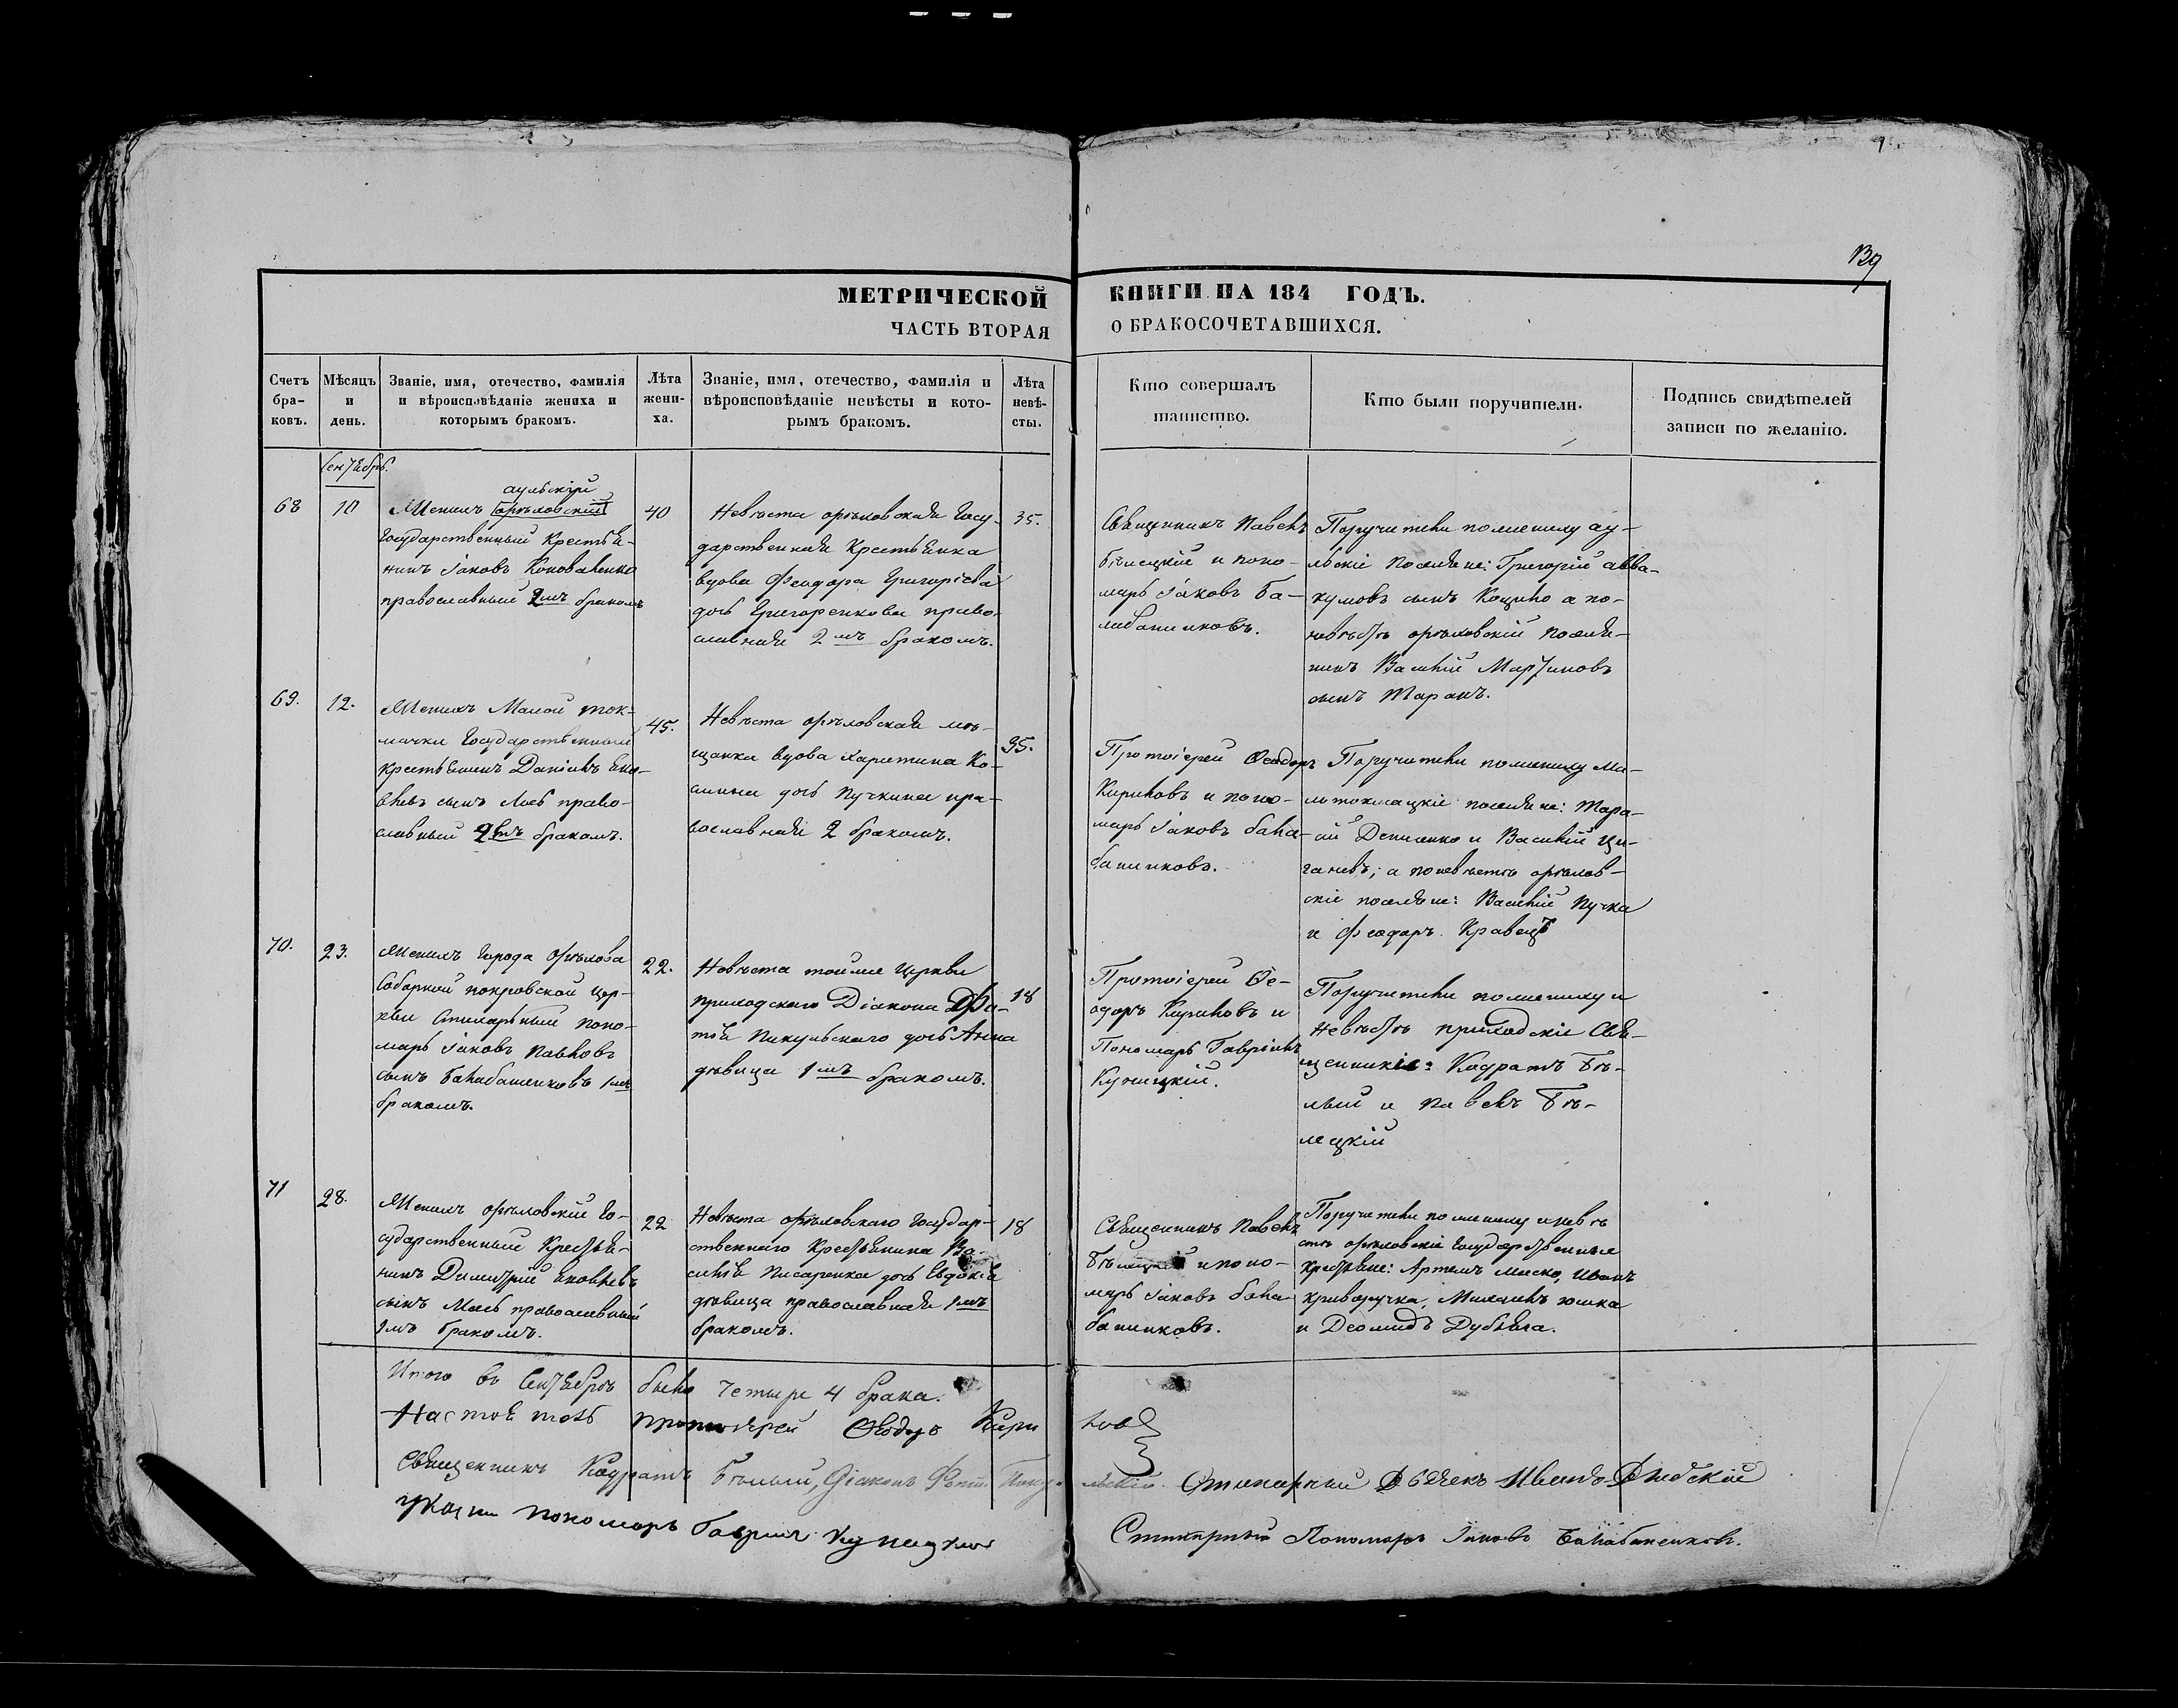 139
МЕТРИЧЕСКОЙ КНИГИ НА 184 ГОДЪ.
ЧАСТЬ ВТОРАЯ О БРАКОСОЧЕТАВШИХСЯ.
Счетъ бра-ковъ.
Мѣсяцъ и день.
Званіе, имя, отечество, фамилія и вѣроисповѣданіе жениха и которымъ бракомъ.
Лѣта жени-ха.
Званіе, имя, отечество, фамилія и вѣроисповѣданіе невѣсты и кото-рымъ бракомъ.
Лѣта невѣ-сты.
Кто совершалъ таинство.
Кто были поручители.
Подпись свидѣтелей записи по желанію.
Сентябрь.
68
10
аульскій
Женихъ орѣховскій
Государственный Крестья-
нинъ Іаковъ Коноваленко
православный 2мъ бракомъ
40
Невѣста орѣховская Госу-
дарственная Крестьянка
вдова Феодора Григоріева
дочь Григоренкова право-
славная 2мъ бракомъ.
35.
Священникъ Павелъ
Бѣлецкій и поно-
марь Іаковъ Ба-
лабанинковъ.
Поручители по жениху ау-
льскіе поселяне: Григорій авва-
кумовъ сынъ Коцюло а по
невѣстѣ орѣховскій поселя-
нинъ Василій Мартиновъ
сынъ Таранъ.
69.
12.
Женихъ Малой ток-
мачки Государственный
крестьянинъ Даніилъ Яко-
влевъ сынъ Лось право-
славный 2мъ бракомъ.
45.
Невѣста орѣховская мѣ-
щанка вдова Харитина Ко-
сьмина дочь Пучкина пра-
вославная 2 бракомъ.
35.
Протоіерей Феодоръ
Кириловъ и поно-
марь Іаковъ бала-
банинковъ.
Поручители по жениху ма-
лотокмацкіе поселяне: Тара-
сій Денисенко и Василій Ци-
ганевъ; а по невѣстѣ орѣхов-
скіе поселяне: Василій Пучка
и Феодоръ Кравецъ
70.
23.
Женихъ Города Орѣхова
Соборной покровской Цер-
кви Стихарный поно-
марь Іаковъ Павловъ
сынъ Балабаненковъ 1мъ
бракомъ.
22.
Невѣста тойже Церкви
приходскаго Діакона Фо-
тія Пикульскаго дочь Анна
дѣвица 1мъ бракомъ.
18
Протоіерей Фе-
одоръ Кириловъ и
Пономарь Гавріилъ
Куницкій.
Поручители по жениху и
Невѣстѣ приходскіе Свя-
щенники: Кодратъ Бѣ-
лый и Павелъ Бѣ-
лецкій
71
28.
Женихъ орѣховскій Го-
сударственный Крестья-
нинъ Димитрій Яковлевъ
сынъ Мось православный
1мъ бракомъ.
22
Невѣста орѣховскаго Государ-
ственнаго Крестьянина Ва-
силія Писаренка дочь Евдокія
дѣвица православная 1мъ
бракомъ.
18
Священникъ Павелъ
Бѣлецкій и поно-
марь Іаковъ бала-
банинковъ.
Поручители по жениху и невѣ-
стѣ орѣховскіе Государственные
Крестьяне: Артемъ Маско, Иванъ
Криворучка, Михаилъ юшка
и Деомидъ Дубяга.
Итого въ Сентябрѣ было четыре 4 брака.
Настоятель протоіерей Феодоръ Кириловъ
Священникъ Кодратъ Бѣлый, Діаконъ Фотій Пикульскій. Стихарный Дьячекъ Иванъ
Указный пономарь Гавріилъ Куницкій Стихарный Пономарь Іаковъ Балабаненковъ.